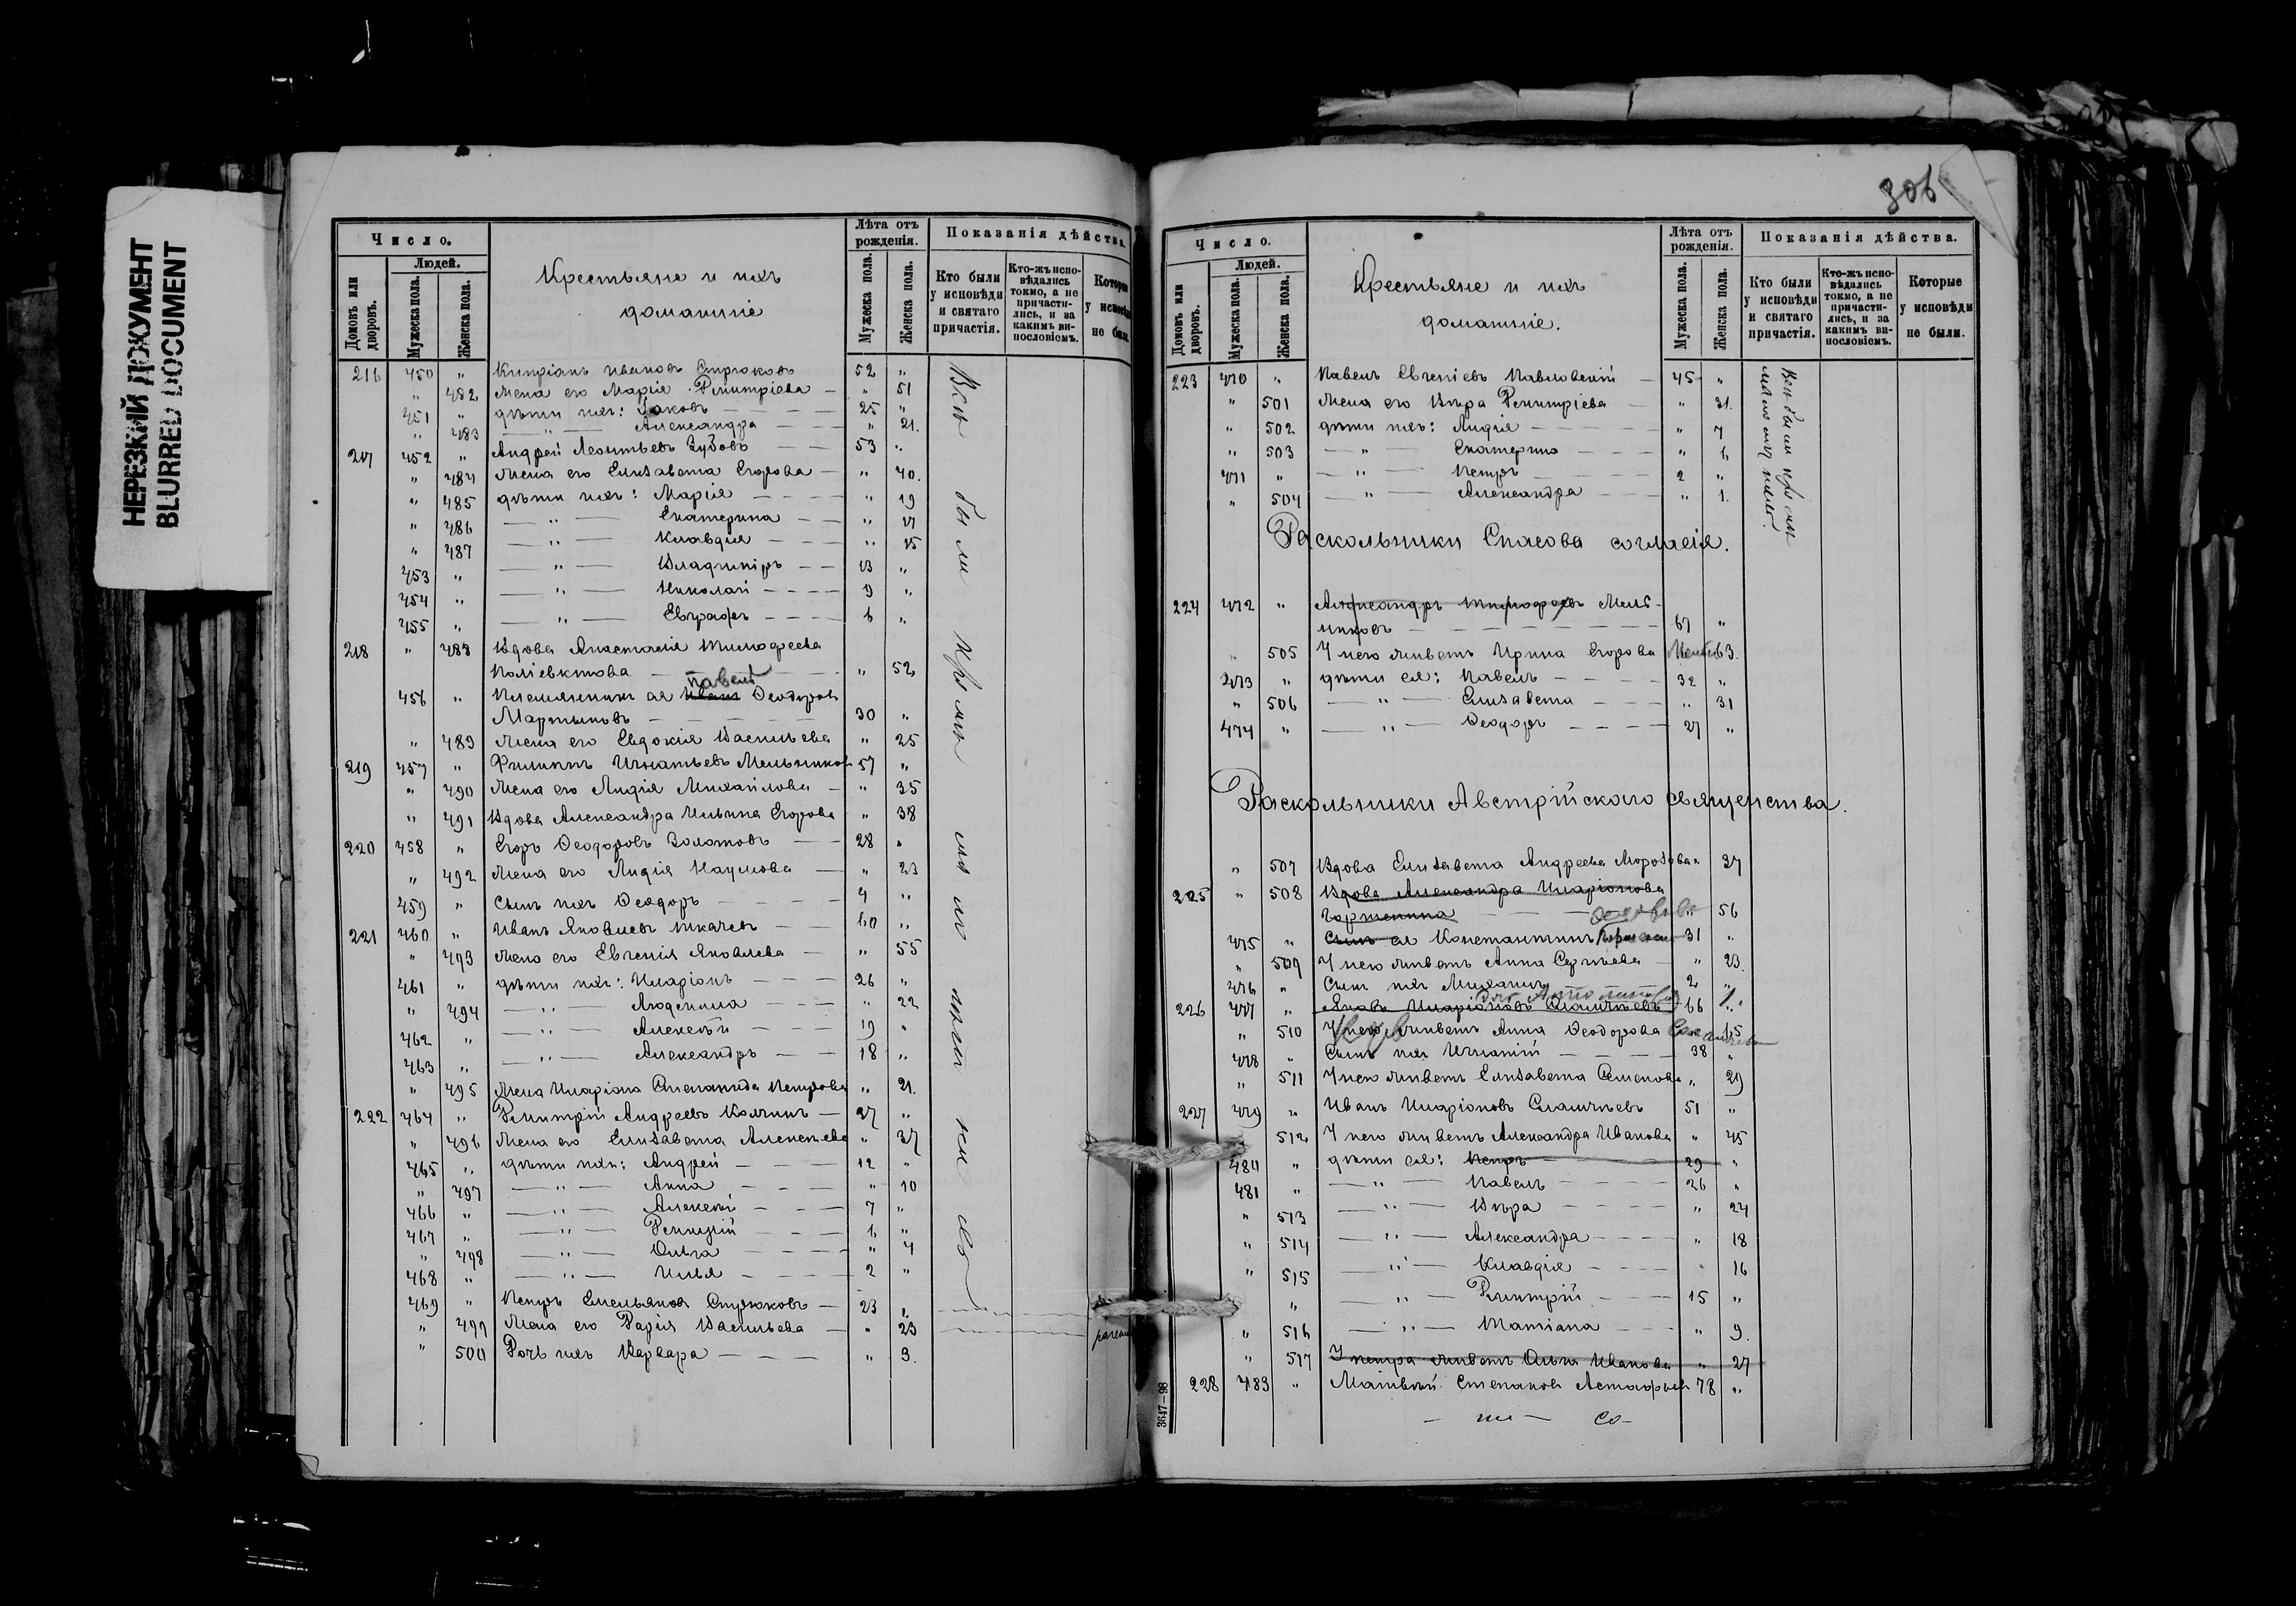 НЕРЕЗКИЙ ДОКУМЕНТ
BLURRED DOCUMENT
Число.
Людей.
Домовъ или дворовъ.
Мужеска пола.
Женска пола.
Крестьяне и ихъ
домашніе
Лѣта отъ рожденія.
Мужеска пола.
Женска пола.
Показанія дѣйства.
Кто были у исповѣди и святаго причастія.
Кто-жъ исповѣдались токмо, а не причастились, и за какимъ виновословіемъ.
Которые у исповѣди не были.
216 450 " Кипріанъ Ивановъ Спрюковъ 52 "
" 482 Жена его Марія Димитріева — " 51
451 " дѣти ихъ: Іаковъ — 25 "
" 483 — " — Александра — " 21.
217 452 " Андрей Леонтьевъ Зубовъ — 53 "
" 484 Жена его Елисавета Егорова — " 40.
" 485 дѣти ихъ: Марія — " 19
" 486 — " — Екатерина — " 17
" 487 — " — Клавдія — " 15
453 " — " — Владимиръ — 13 "
454 " — " — Николай — 9 "
455 " — " — Евграфъ — 6 "
218 " 488 Вдова Анастасія Тимофеева
Поліевктова — " 52
Павелъ
456 " Племянникъ ея Иванъ Ѳеодоровъ
Мартыновъ — 30 "
" 489 Жена его Евдокія Васильева " 25
219 457 " Филиппъ Игнатьевъ Мельников 57 "
" 490 Жена его Лидія Михайлова — " 35
" 491 Вдова Александра Ильина Егорова " 38
220 458 " Егоръ Ѳеодоровъ Золотовъ — 28 "
" 492 Жена его Лидія Наумова — " 23
459 " Сынъ ихъ Ѳеодоръ — 4 "
221 460 " Иванъ Яковлевъ Ткачевъ — 60 "
" 493 Жена его Евгенія Яковлева — " 55
461 " дѣти ихъ: Иларіонъ — 26 "
" 494 — " — Людмила — " 22
462 " — " — Алексѣй — 19 "
463 " — " — Александръ — 18 "
" 495 Жена Иларіона Степанида Петрова " 21.
222 464 " Димитрій Андреевъ Колчинъ — 37 "
" 496 Жена его Елисавета Алексѣева " 37
465 " дѣти ихъ: Андрей — 12 "
" 497 — " — Анна — " 10
466 " — " — Алексѣй — 7 "
467 " — " — Димитрій — 6 "
" 498 — " — Ольга — " 4
468 " — " — Илья — 2 "
469 " Петръ Емельяновъ Спрюковъ — 23 "
" 499 Жена его Дарія Васильева — " 23
" 500 Дочь ихъ Варвара — " 3.
306
Число.
Людей.
Домовъ или дворовъ.
Мужеска пола.
Женска пола.
Крестьяне и ихъ
домашніе.
Лѣта отъ рожденія.
Мужеска пола.
Женска пола.
Показанія дѣйства.
Кто были у исповѣди и святаго причастія.
Кто-жъ исповѣдались токмо, а не причастились, и за какимъ виновословіемъ.
Которые у исповѣди не были.
223 470 " Павелъ Евгеніевъ Павловскій — 45 "
" 501 Жена его Вѣра Димитріева — " 31.
" 502 дѣти ихъ: Лидія — " 7
" 503 — " — Екатерина — " 6
471 " — " — Петръ — 2 "
" 504 — " — Александра — " 1.
Раскольники Спасова согласія.
224 472 " Александръ Тимофеевъ Мель-
никовъ — 67 "
" 505 У него живетъ Ирина Егорова 63.
473 " дѣти ея: Павелъ — 32 "
" 506 — " — Елисавета — " 31
474 " — " — Ѳеодоръ — 27 "
Раскольники Австрійскаго священства.
" 507 Вдова Елисавета Андреева Морозова " 37
225 " 508 Вдова Александра Иларіонова
" 56
475 " Сынъ ея Константинъ 31 "
" 509 У него живетъ Анна Сергѣева — " 23.
476 " Сынъ ихъ Михаилъ 2 "
226 477 " Яковъ Иларіоновъ 66
" 510 У него живетъ Анна Ѳеодорова 65
478 " Сынъ ихъ Игнатій — 38 "
" 511 У него живетъ Елисавета Семенова " 29
227 479 " Иванъ Иларіоновъ 51 "
512 У него живетъ Александра Иванова " 45
480 " дѣти ея: Петръ — 29 "
481 " — " — Павелъ — 26 "
" 513 — " — Вѣра — " 24
" 514 — " — Александра — " 18
" 515 — " — Клавдія — 16
" — " — Димитрій — 15 "
" 516 — " — Татіана — " 9.
" 517 У Петра живетъ Ольга Иванова " 27
228 483 " Матвей Степановъ Астафьев 78 "
3647—98